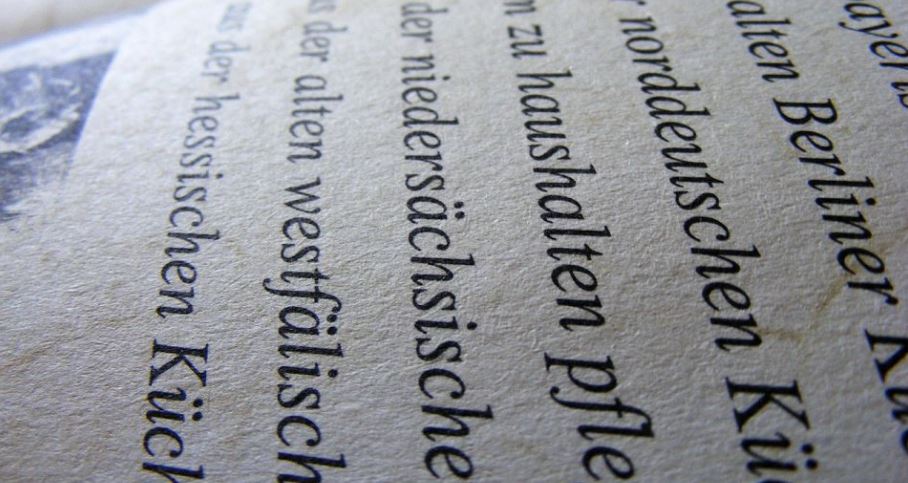 ayeris
alten Berliner Kü
norddeutschen Kü
zu haushalten pfle
der niedersächsische
der alten westfälisch
aus der hessischen Küch